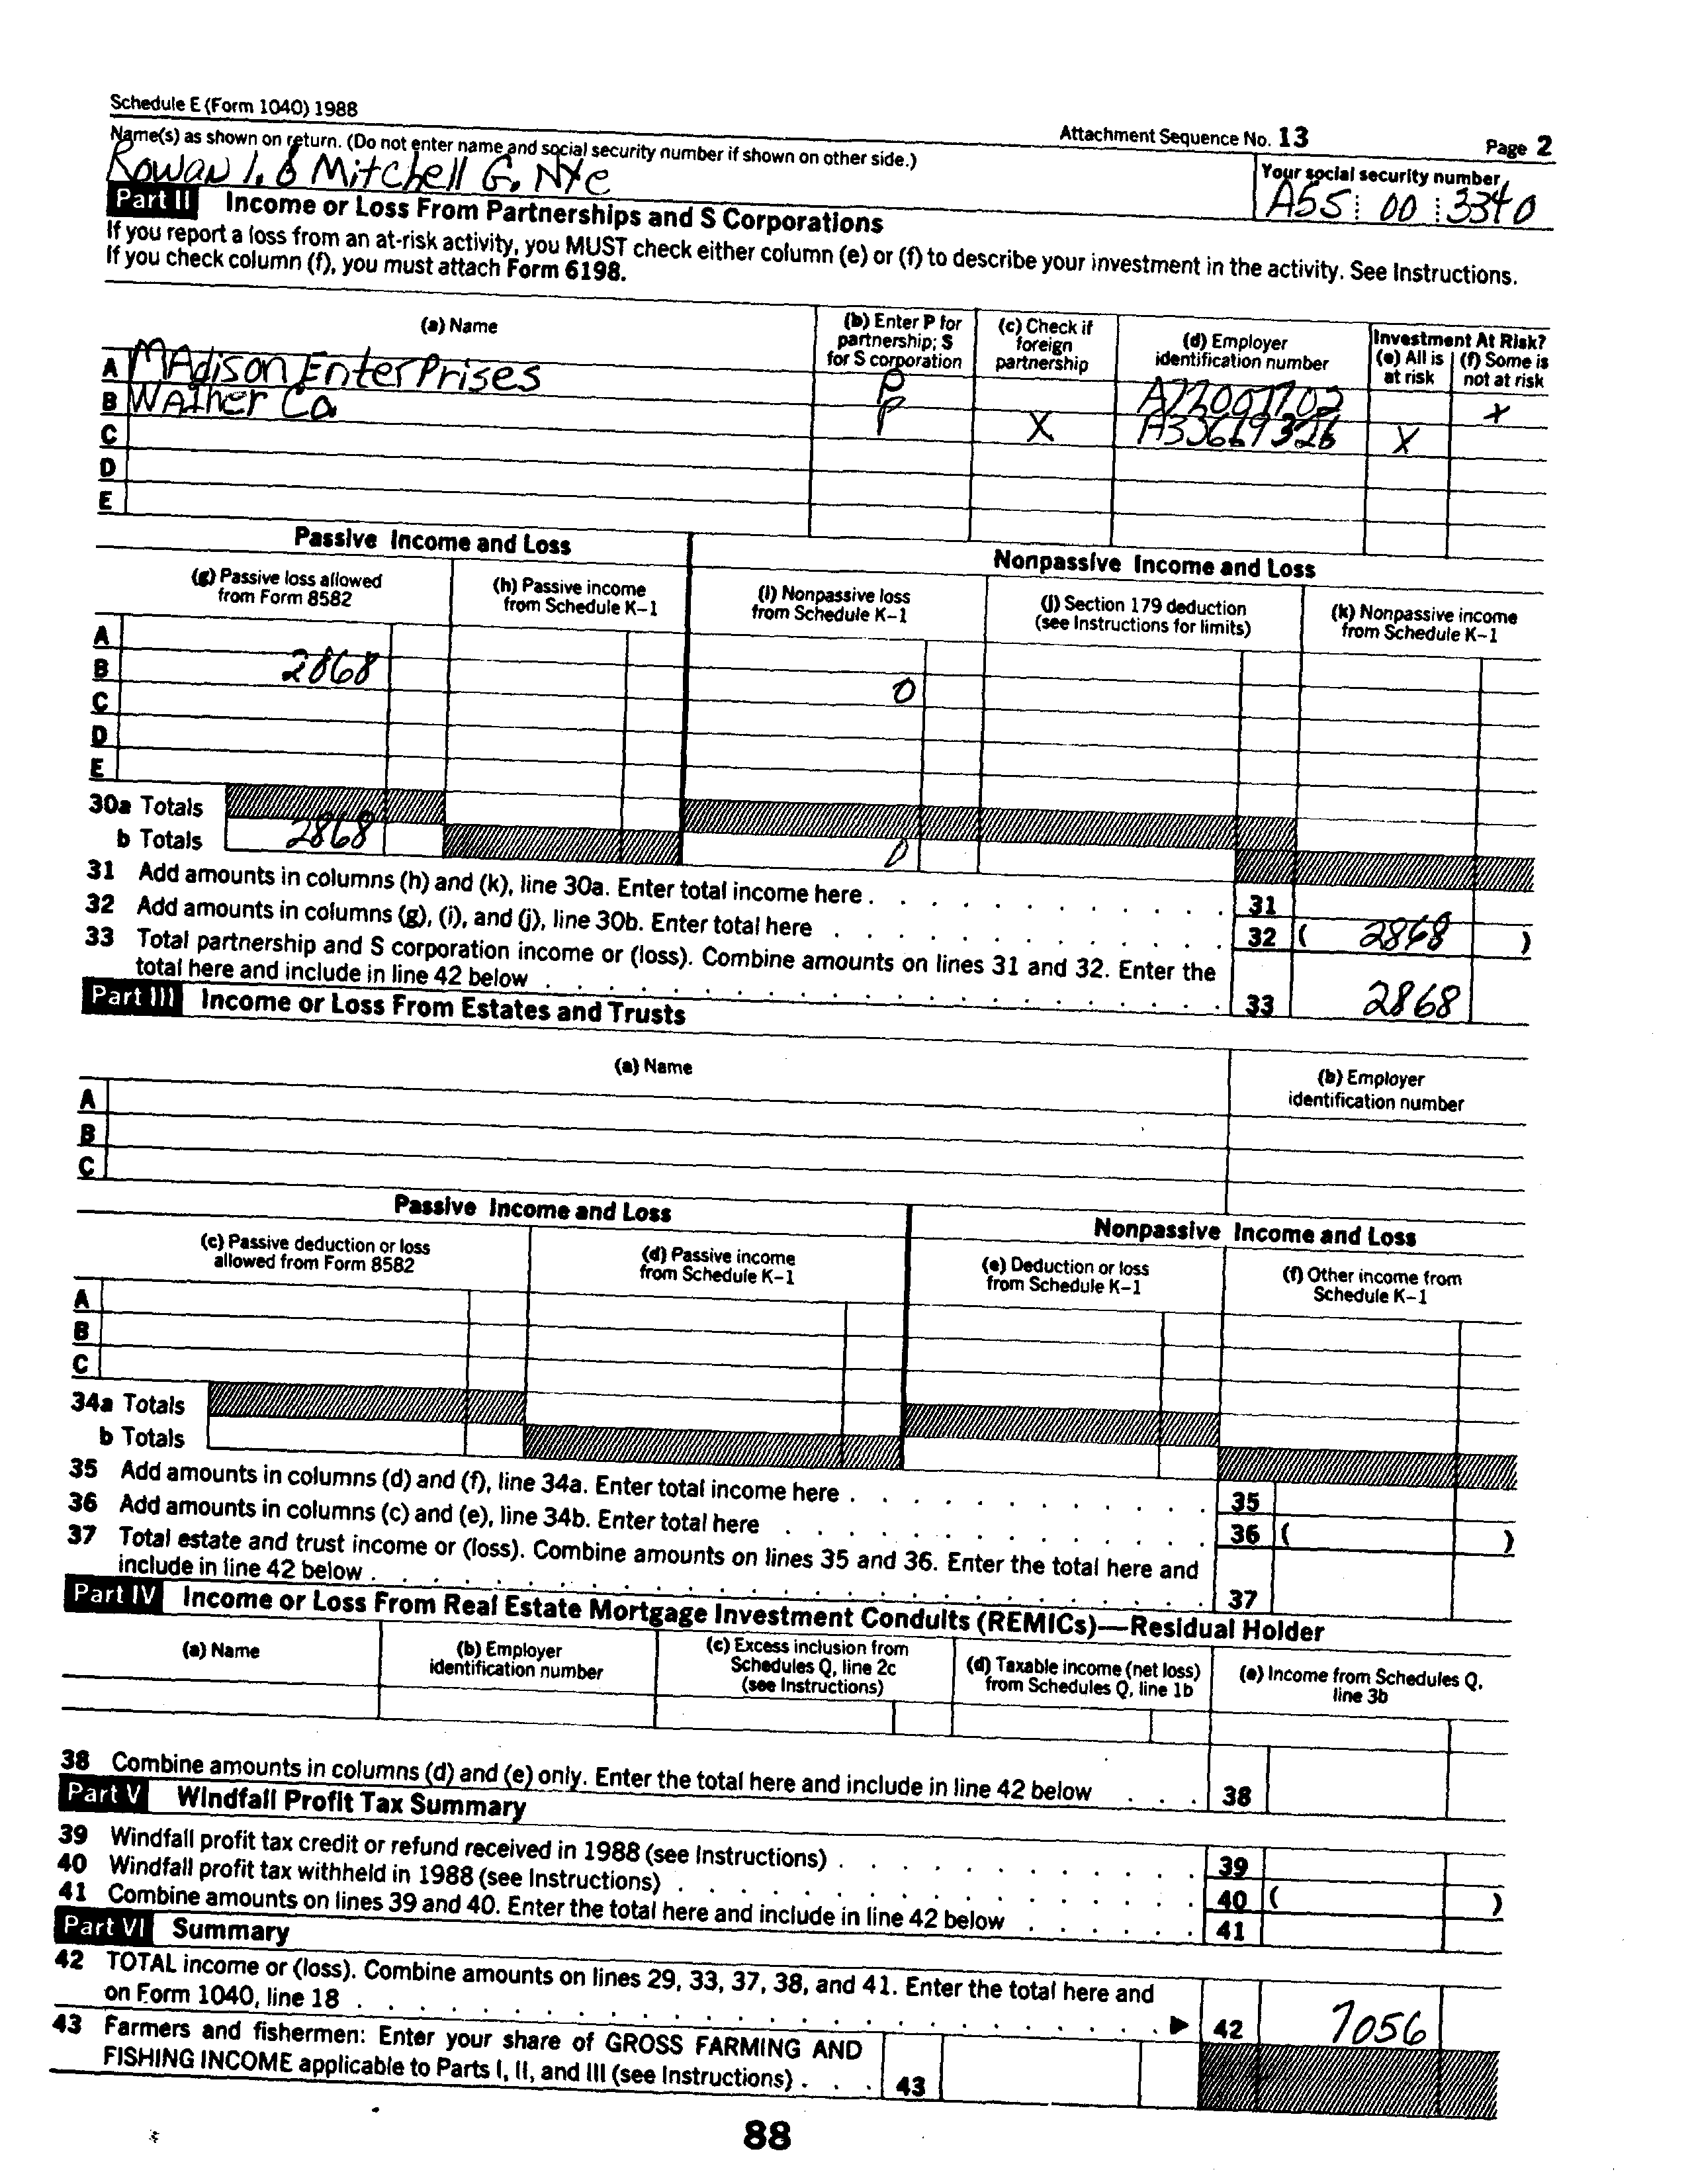 Schedule E (Form 1040) 1988
Attachment Sequence No. 13
Page 2
Name(s) as shown on return. (Do not enter name and social security number if shown on other side.)
Your social security number
Rowan I. & Mitchell G. Nye
A55 00 3340
Part II Income or Loss From Partnerships and S Corporations
If you report a loss from an at-risk activity, you MUST check either column (e) or (f) to describe your investment in the activity. See Instructions.
If you check column (f), you must attach Form 6198.
(a) Name
(b) Enter P for partnership; S for S corporation
(c) Check if foreign partnership
(d) Employer identification number
Investment At Risk?
(e) All is at risk
(f) Some is not at risk
A MAdison EnterPrises P X
B WAther Co. P X X
C
D
E
Passive Income and Loss
Nonpassive Income and Loss
(g) Passive loss allowed from Form 8582
(h) Passive income from Schedule K-1
(i) Nonpassive loss from Schedule K-1
(j) Section 179 deduction (see Instructions for limits)
(k) Nonpassive income from Schedule K-1
A
B 2868 0
C
D
E
30a Totals
b Totals 2868 0
31 Add amounts in columns (h) and (k), line 30a. Enter total income here . . . 31
32 Add amounts in columns (g), (i), and (j), line 30b. Enter total here . . . 32 ( 2868 )
33 Total partnership and S corporation income or (loss). Combine amounts on lines 31 and 32. Enter the
total here and include in line 42 below . . . 33 2868
Part III Income or Loss From Estates and Trusts
(a) Name
(b) Employer identification number
A
B
C
Passive Income and Loss
Nonpassive Income and Loss
(c) Passive deduction or loss allowed from Form 8582
(d) Passive income from Schedule K-1
(e) Deduction or loss from Schedule K-1
(f) Other income from Schedule K-1
A
B
C
34a Totals
b Totals
35 Add amounts in columns (d) and (f), line 34a. Enter total income here . . . 35
36 Add amounts in columns (c) and (e), line 34b. Enter total here . . . 36 ( )
37 Total estate and trust income or (loss). Combine amounts on lines 35 and 36. Enter the total here and
include in line 42 below . . . 37
Part IV Income or Loss From Real Estate Mortgage Investment Conduits (REMICs)—Residual Holder
(a) Name
(b) Employer identification number
(c) Excess inclusion from Schedules Q, line 2c (see Instructions)
(d) Taxable income (net loss) from Schedules Q, line 1b
(e) Income from Schedules Q, line 3b
38 Combine amounts in columns (d) and (e) only. Enter the total here and include in line 42 below . . . 38
Part V Windfall Profit Tax Summary
39 Windfall profit tax credit or refund received in 1988 (see Instructions) . . . 39
40 Windfall profit tax withheld in 1988 (see Instructions) . . . 40 ( )
41 Combine amounts on lines 39 and 40. Enter the total here and include in line 42 below . . . 41
Part VI Summary
42 TOTAL income or (loss). Combine amounts on lines 29, 33, 37, 38, and 41. Enter the total here and
on Form 1040, line 18 . . . ▶ 42 7056
43 Farmers and fishermen: Enter your share of GROSS FARMING AND
FISHING INCOME applicable to Parts I, II, and III (see Instructions) . . . 43
88